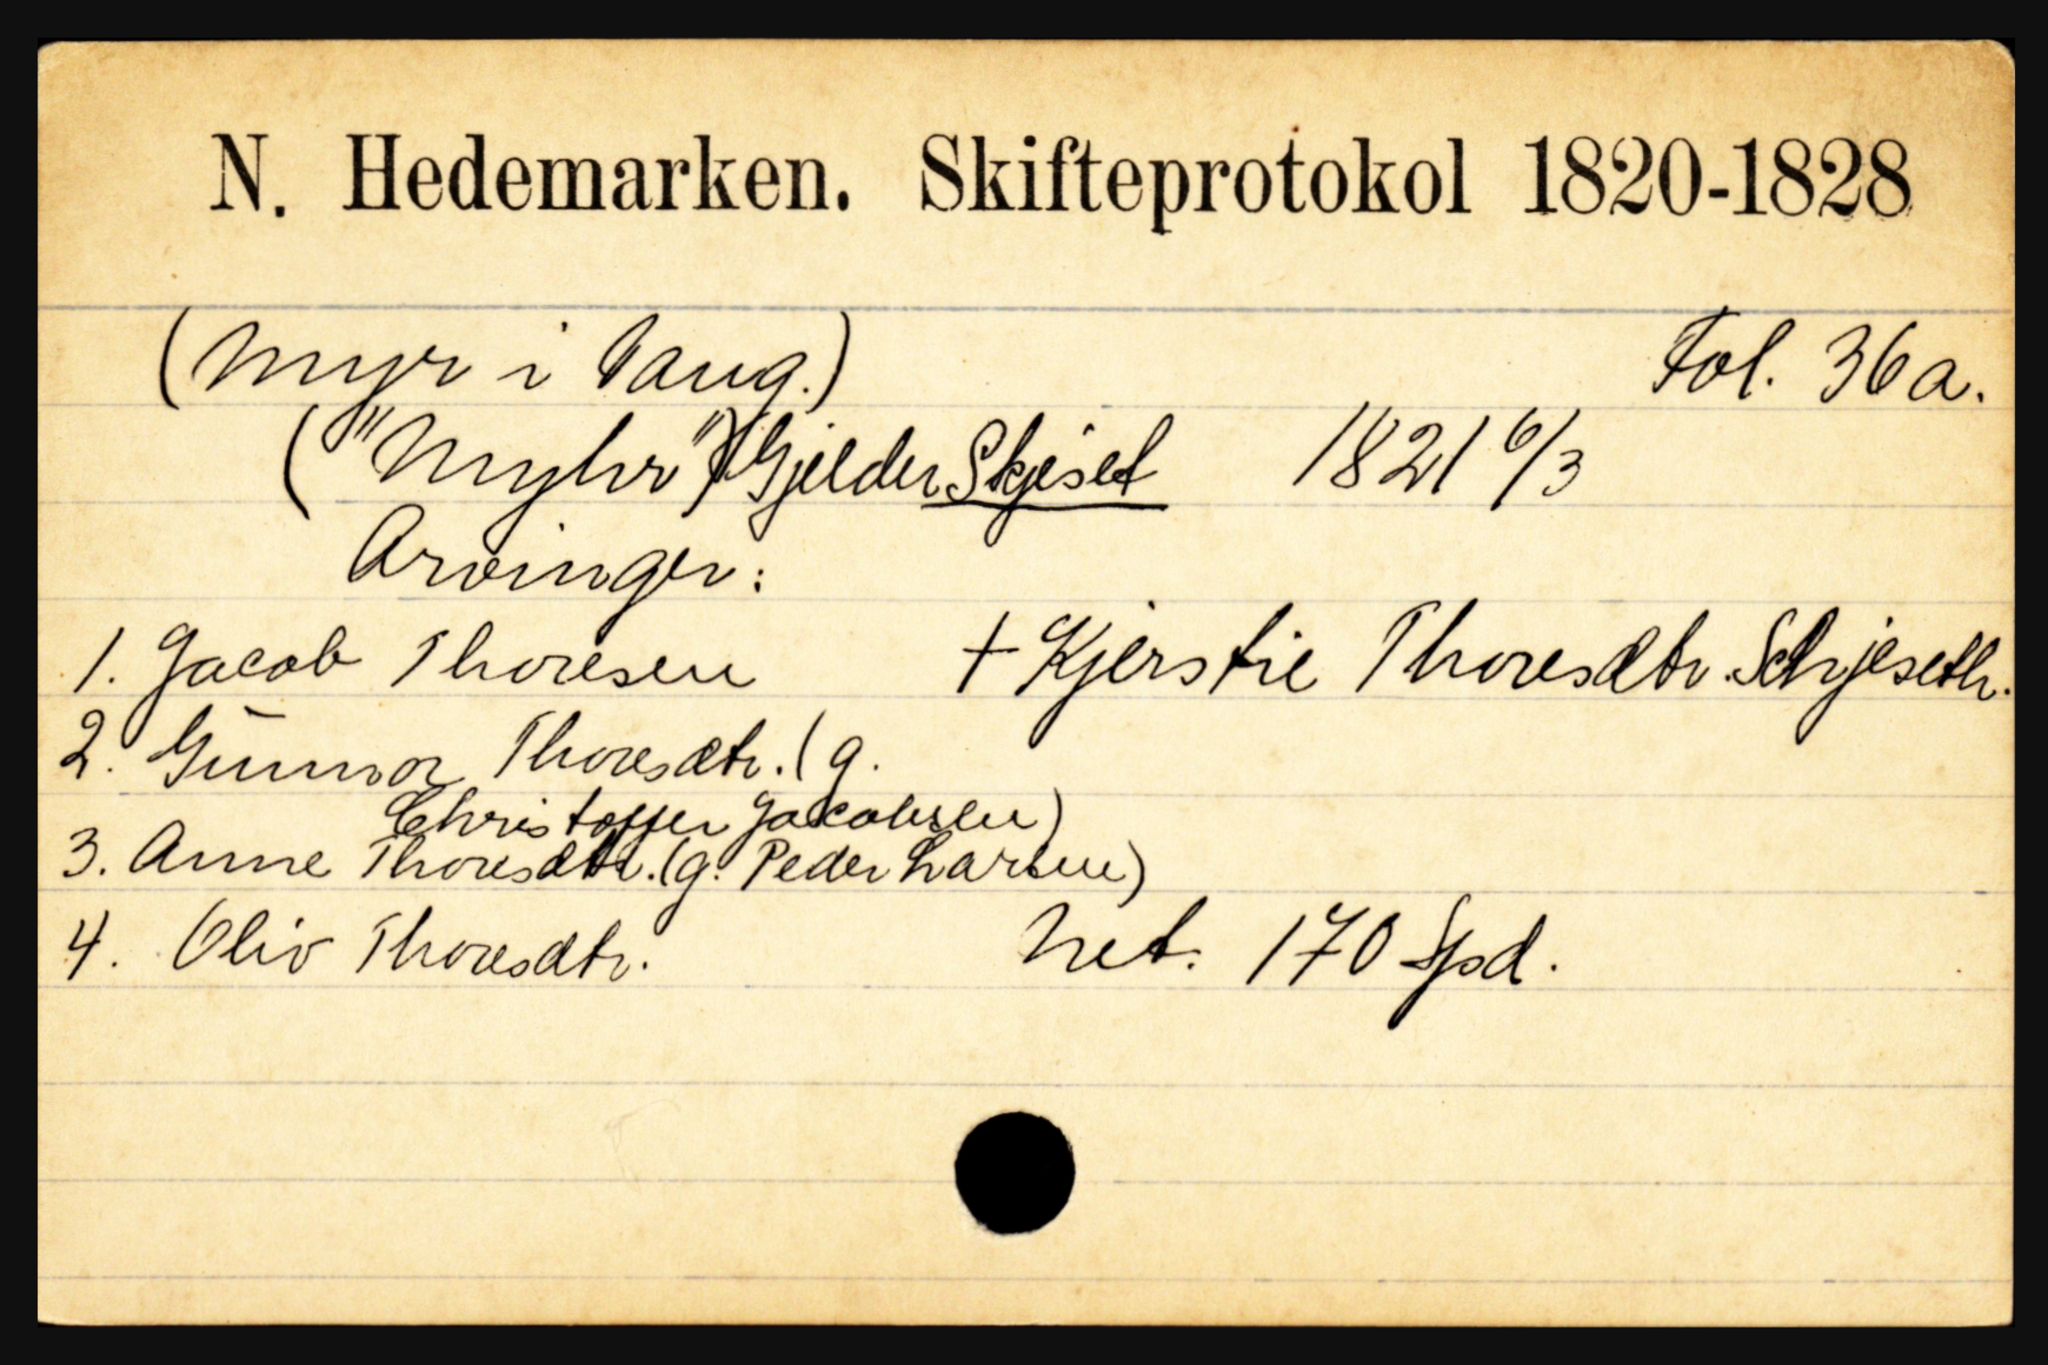 N. Hedemarken. Skifteprotokol 1820-1828
(Myr i Vang.) Fol. 36a.
("Myhr") Gjelder Skjeset 1821 6/3
Arvinger:
1. Jacob Thoresen † Kjerstie Thoresdtr. Schjeseth.
2. Gunnor Thoresdtr. (g.
Christoffer Jacobsen)
3. Anne Thoresdtr. (g. Peder Larsen)
4. Oliv Thoresdtr. Net. 170 Spd.